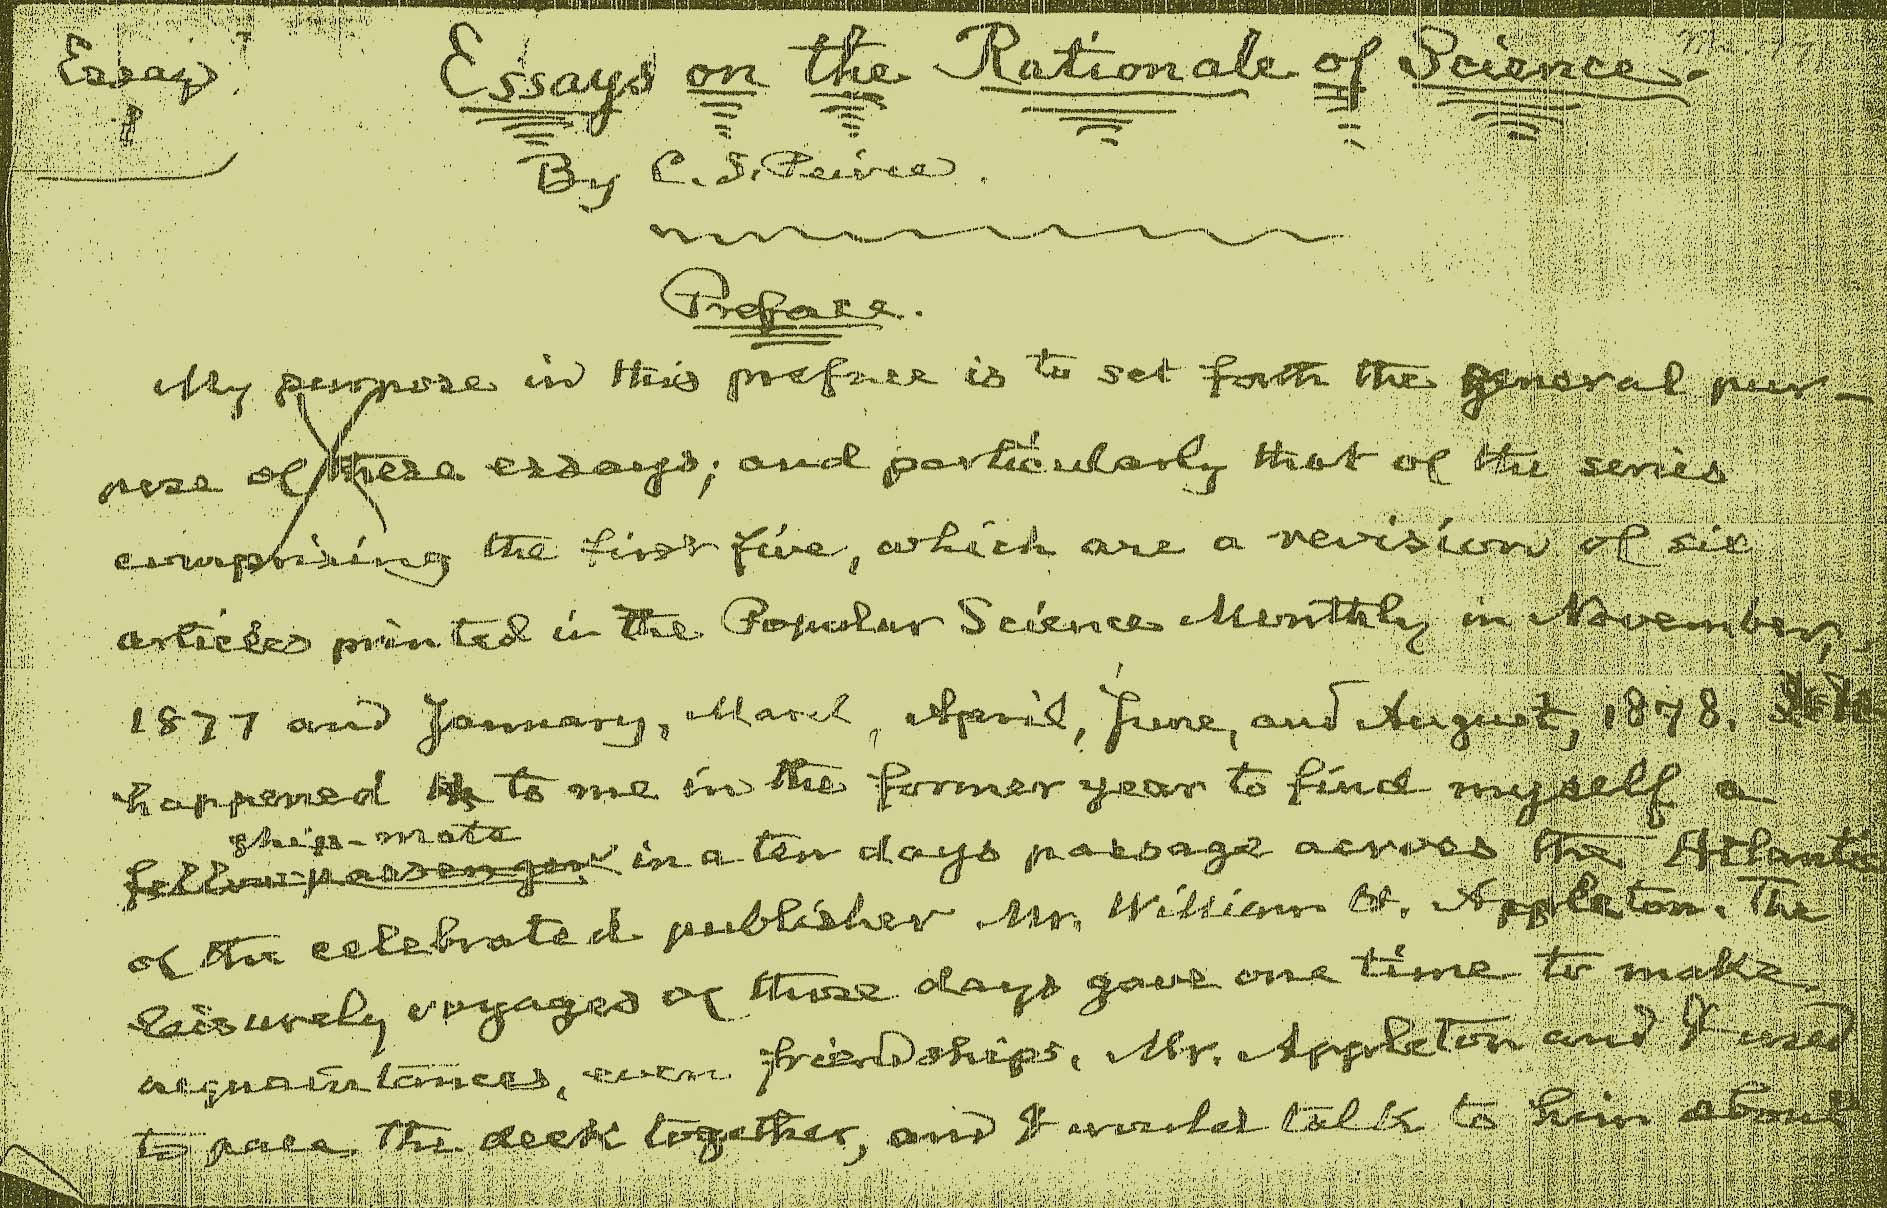 Essays
1
Essays on the Rationale of Science.
By C. S. Peirce.
Preface.
My purpose in this preface is to set forth the general pur-
pose of these essays; and particularly that of the series
comprising the first five, which are a revision of six
articles printed in the Popular Science Monthly in November,
1877 and January, March, April, June, and August, 1878. It
happened to me in the former year to find myself a
ship-mate
fellow-passenger in a ten days passage across the Atlantic
of the celebrated publisher Mr. William H. Appleton. The
leisurely voyages of those days gave one time to make
acquaintances, even friendships. Mr. Appleton and I used
to pace the deck together, and I would talk to him about